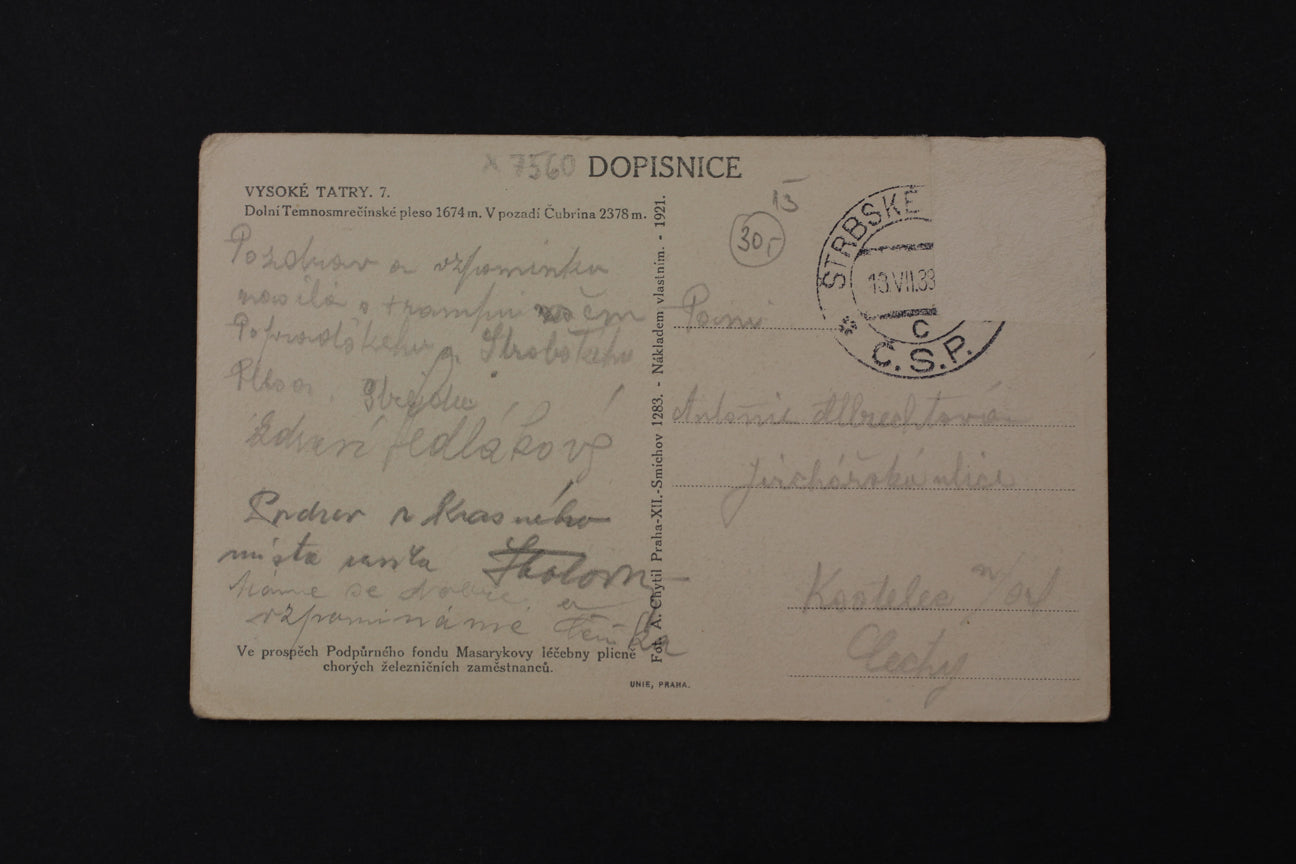 x 7560 DOPISNICE
VYSOKÉ TATRY. 7.
Dolní Temnosmrečinské pleso 1674 m. V pozadí Čubrina 2378 m.
Pozdrav a vzpomínku
posílá s trampu
Popradského a Štrbského
Plesa.
Zdraví Sedláková
Pozdrav z krásného
místa
Máme se dobře a
vzpomínáme
Ve prospěch Podpůrného fondu Masarykovy léčebny plicně
chorých železničních zaměstnanců.
UNIE, PRAHA.
Fot. A. Chytil Praha-XII.-Smíchov 1283. - Nákladem vlastním. - 1921.
15
30,-
ŠTRBSKÉ
13.VII.33
C
Č.S.P.
Paní
Antonie Albrechtová
Jirchářská ulice
Kostelec n/Orl
Čechy